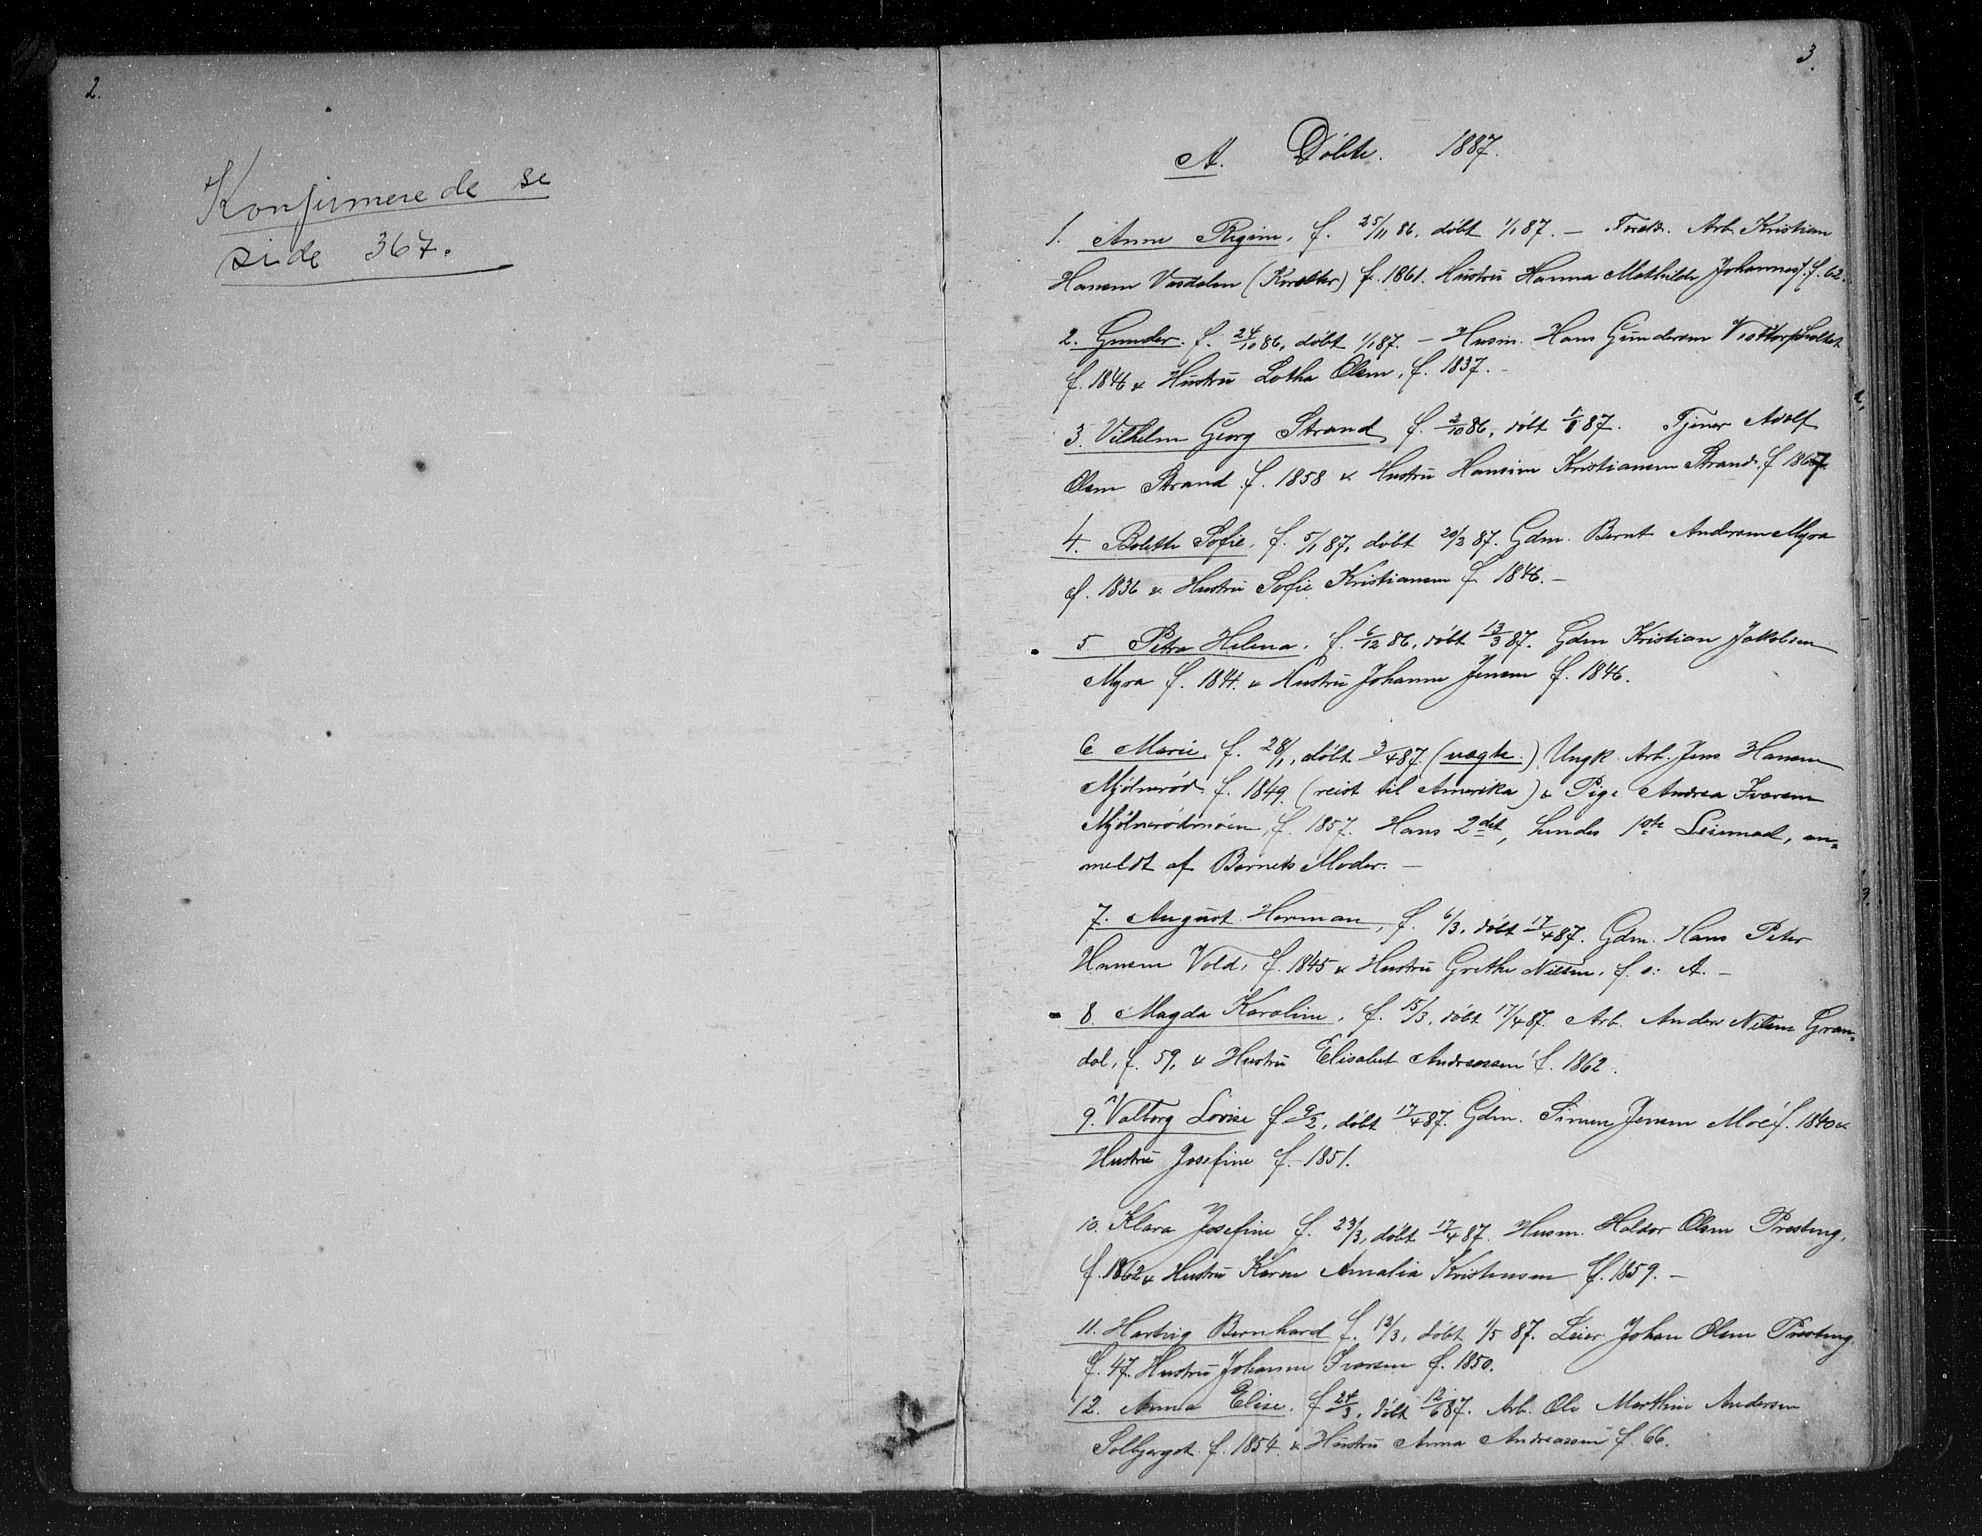 2.
Konfirmerede se
side 367.
3.
A. Döbte. 1887.
1. Anne Regine, f. 25/11 86, döbt 1/1 87. — Foræld. Arb. Kristian
Hansen f. 1861. Hustru Hanna Mathilde Johannesd. f. 62.
2. Gunder. f. 24/10 86, döbt 1/1 87. — Husm. Hans Gundersen
f. 1846 & Hustru Lotha Olsen, f. 1837. —
3. Vilhelm Georg Strand, f. 3/10 86, döbt 87. Tjener Adolf
Olsen Strand f. 1858 & Hustru Hansine Kristiansen Strand. f 1867
4. Bolette Sofie, f. 5/1 87, döbt 20/2 87. Gdm. Bernt Andersen Myra
f. 1836 & Hustru Sofie Kristiansen f. 1846. —
5. Petra Helena, f. 6/12 86, döbt 13/3 87. Gdm Kristian Jakobsen
Myra f. 1844. & Hustru Johanne Jensen f. 1846.
6 Marie, f. 28/1, döbt 3/4 87. (uægte.) Ungk. Arb. Jens Hansen
Mjölnerød. f. 1849. (reist til Amerika) & Pige Andrea Iversen
Mjölnerødmoen, f. 1857. Hans 2det, hendes 1ste Leiermaal, an-
meldt af Barnets Moder. —
7. August Herman, f. 6/3, döbt 17/4 87. Gdm. Hans Peter
Hansen Vold, f. 1845 & Hustru Grethe Nilsen, f. s. A. —
8. Magda Karoline, f. 15/3, döbt 17/4 87. Arb. Anders Nilsen Gran-
dal, f. 59, & Hustru Elisabet Andreassen f. 1862.
9. Valborg Lovise f 9/2, döbt 17/4 87. Gdm. Simen Jensen Moe f. 1840 &
Hustru Josefine f. 1851.
10. Klara Josefine f. 23/3, döbt 17/4 87. Husm. Haldor Olsen Presteng,
f. 1862 & Hustru Karen Amalia Kristensen f. 1859. —
11. Hartvig Bernhard f. 13/3, döbt 1/5 87. Leier Johan Olsen Presteng,
f. 47. Hustru Johanne Iversen f. 1850.
12. Anna Elise. f 24/3, döbt 12/6 87. Arb. Ole Marthin Andersen
Solbjerget. f. 1854 & Hustru Anna Andreassen f. 66.